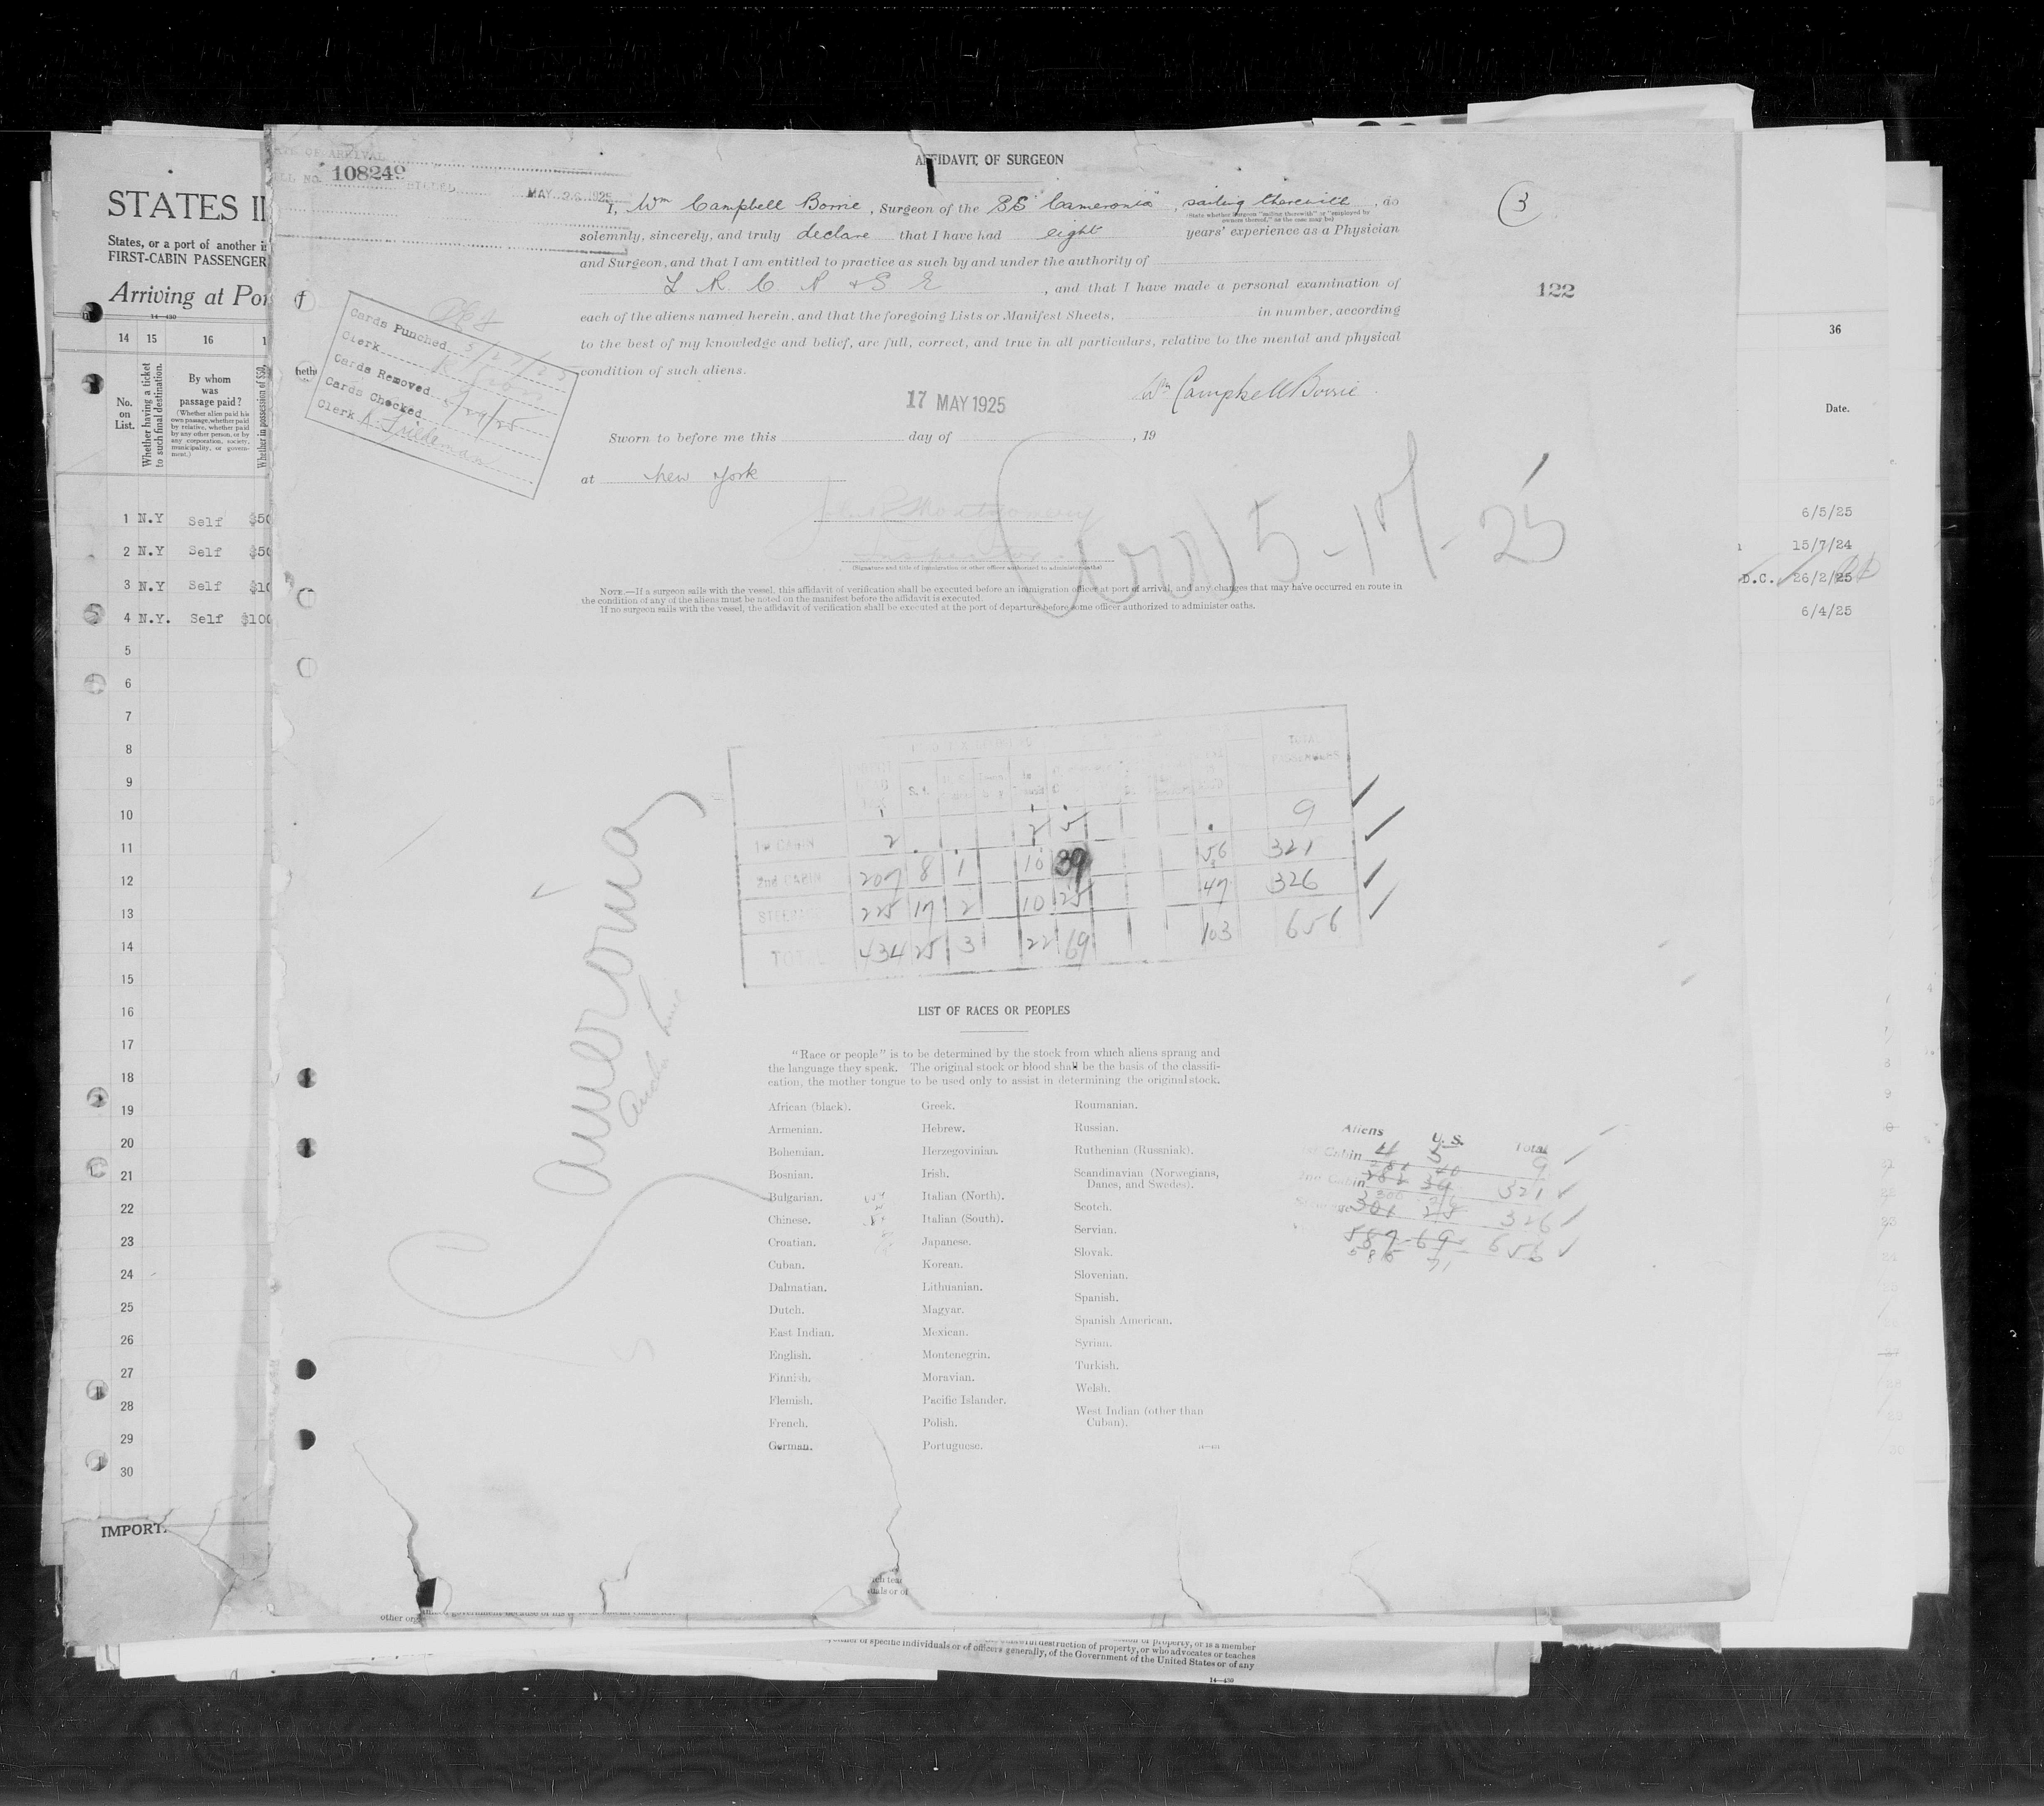 STATES I
States, or a port of another i
FIRST-CABIN PASSENGER
Arriving at Por
14—430
14 15 16 1
No. on List.
Whether having a ticket to such final destination.
By whom was passage paid?
(Whether alien paid his own passage, whether paid by relative, whether paid by any other person, or by any corporation, society, municipality, or government.)
Whether in possession of $50,
1 N.Y Self $50
2 N.Y Self $50
3 N.Y Self $10
4 N.Y. Self $100
5
6
7
8
9
10
11
12
13
14
15
16
17
18
19
20
21
22
23
24
25
26
27
28
29
30
IMPORT
OF ARRIVAL
LL NO. 108249
MAY 26 1925
AFFIDAVIT OF SURGEON
I, Wm Campbell Borrie, Surgeon of the SS "Cameronia", sailing therewith, do
(State whether Surgeon "sailing therewith" or "employed by owners thereof," as the case may be)
solemnly, sincerely, and truly declare that I have had eight years' experience as a Physician
and Surgeon, and that I am entitled to practice as such by and under the authority of
L R. C. P. & S E, and that I have made a personal examination of
each of the aliens named herein, and that the foregoing Lists or Manifest Sheets, in number, according
to the best of my knowledge and belief, are full, correct, and true in all particulars, relative to the mental and physical
condition of such aliens.
3
122
Cards Punched 5/27/25
Clerk
Cards Removed
Cards Checked
Clerk K. Friedman
Wm Campbell Borrie.
17 MAY 1925
Sworn to before me this day of , 19
at New York
Montgomery
Inspector
(Signature and title of immigration or other officer authorized to administer oaths)
5-17-25
NOTE.—If a surgeon sails with the vessel, this affidavit of verification shall be executed before an immigration officer at port of arrival, and any changes that may have occurred en route in
the condition of any of the aliens must be noted on the manifest before the affidavit is executed.
If no surgeon sails with the vessel, the affidavit of verification shall be executed at the port of departure before some officer authorized to administer oaths.
TOTAL PASSENGERS
1st CABIN 2 2 5 9
2nd CABIN 207 8 1 10 39 56 321
STEERAGE 225 17 2 10 25 47 326
TOTAL 434 25 3 22 69 103 656
Cameronia
Anchor Line
LIST OF RACES OR PEOPLES
"Race or people" is to be determined by the stock from which aliens sprang and
the language they speak. The original stock or blood shall be the basis of the classifi-
cation, the mother tongue to be used only to assist in determining the original stock.
African (black).
Armenian.
Bohemian.
Bosnian.
Bulgarian.
Chinese.
Croatian.
Cuban.
Dalmatian.
Dutch.
East Indian.
English.
Finnish.
Flemish.
French.
German.
Greek.
Hebrew.
Herzegovinian.
Irish.
Italian (North).
Italian (South).
Japanese.
Korean.
Lithuanian.
Magyar.
Mexican.
Montenegrin.
Moravian.
Pacific Islander.
Polish.
Portuguese.
Roumanian.
Russian.
Ruthenian (Russniak).
Scandinavian (Norwegians,
Danes, and Swedes).
Scotch.
Servian.
Slovak.
Slovenian.
Spanish.
Spanish American.
Syrian.
Turkish.
Welsh.
West Indian (other than
Cuban).
Aliens U. S. Total
Cabin 4 5 9
2nd Cabin 321
301 326
587 69 656
36
Date.
6/5/25
15/7/24
D.C. 26/2/25
6/4/25
other org
of property, or is a member
of specific individuals or of officers generally, of the Government of the United States or of any
destruction of property, or who advocates or teaches
14—430